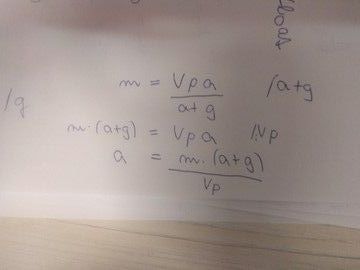 floas
m = Vρa / (a+g) /a+g
/g
m·(a+g) = Vρa /:Vρ
a = m·(a+g) / Vρ